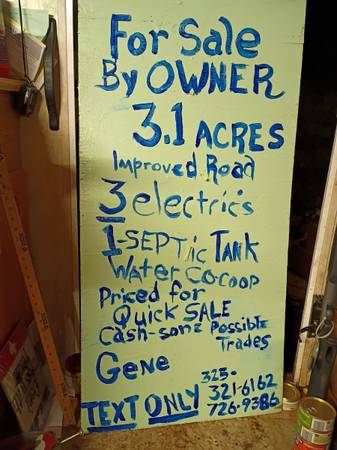 For Sale
By OWNER
3.1 ACRES
Improved Road
3 electrics
1-SEPTic TANK
Water COCOOP
Priced for
Quick SALE
Cash-some Possible
Trades
Gene
325-
321-6162
TEXT ONLY 726-9386